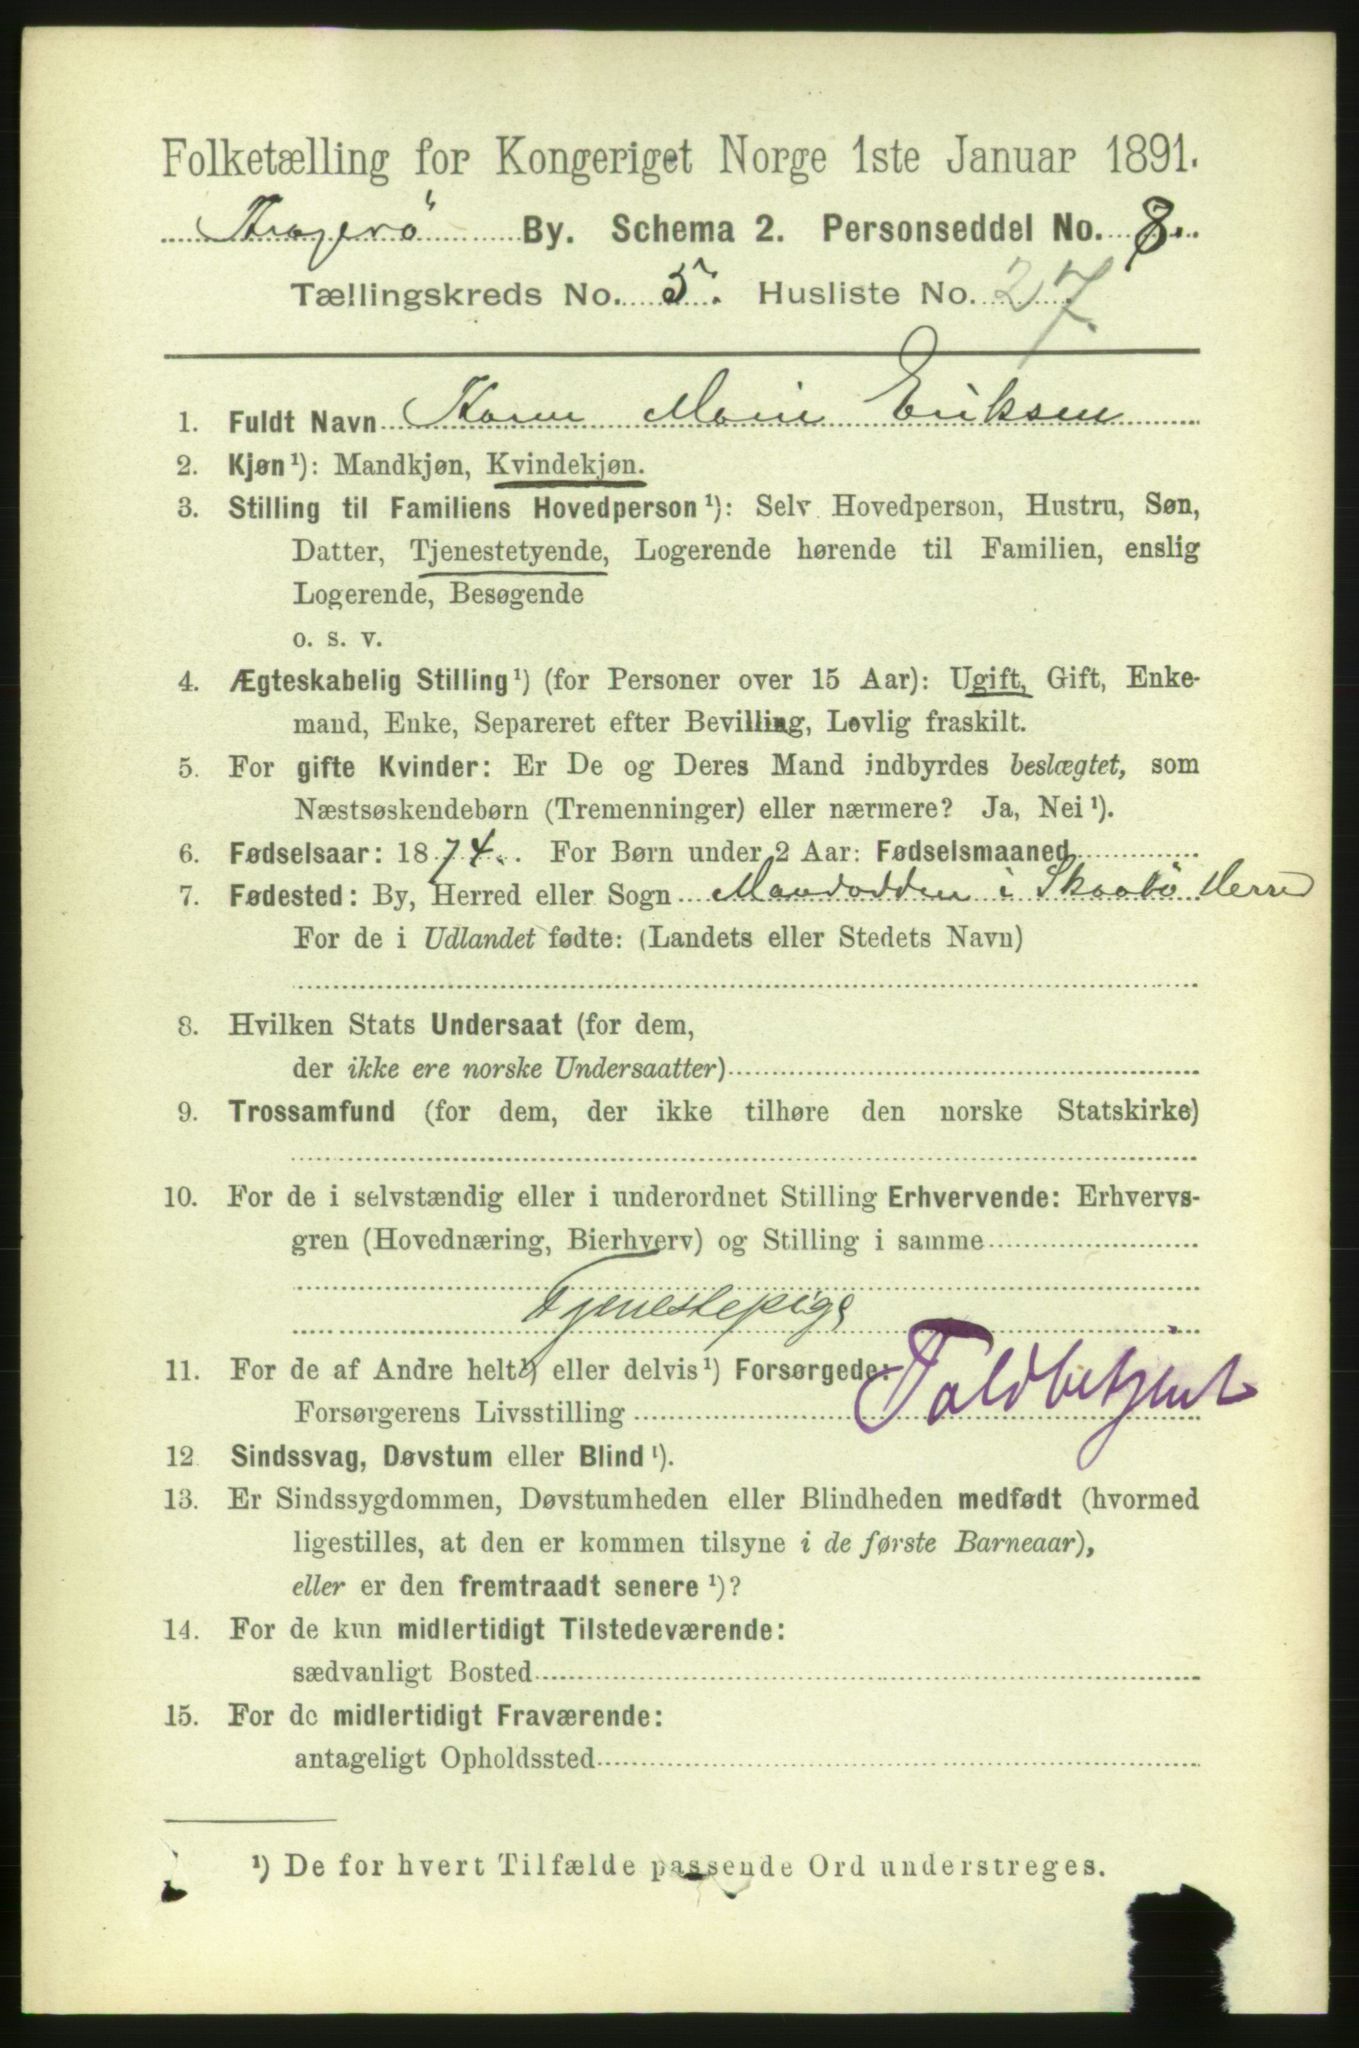 Folketælling for Kongeriget Norge 1ste Januar 1891.
Kragerø By. Schema 2. Personseddel No. 8.
Tællingskreds No. 5. Husliste No. 27.
1. Fuldt Navn Karen Marie Eriksen
2. Kjøn¹): Mandkjøn, Kvindekjøn.
3. Stilling til Familiens Hovedperson¹): Selv Hovedperson, Hustru, Søn,
Datter, Tjenestetyende, Logerende hørende til Familien, enslig
Logerende, Besøgende
o. s. v.
4. Ægteskabelig Stilling¹) (for Personer over 15 Aar): Ugift, Gift, Enke-
mand, Enke, Separeret efter Bevilling, Lovlig fraskilt.
5. For gifte Kvinder: Er De og Deres Mand indbyrdes beslægtet, som
Næstsøskendebørn (Tremenninger) eller nærmere? Ja, Nei¹).
6. Fødselsaar: 1874. For Børn under 2 Aar: Fødselsmaaned
7. Fødested: By, Herred eller Sogn i Skaatø Herred
For de i Udlandet fødte: (Landets eller Stedets Navn)
8. Hvilken Stats Undersaat (for dem,
der ikke ere norske Undersaatter)
9. Trossamfund (for dem, der ikke tilhøre den norske Statskirke)
10. For de i selvstændig eller i underordnet Stilling Erhvervende: Erhvervs-
gren (Hovednæring, Bierhverv) og Stilling i samme
Tjenestepige
11. For de af Andre helt¹) eller delvis¹) Forsørgede:
Forsørgerens Livsstilling Toldbetjent
12 Sindssvag, Døvstum eller Blind¹).
13. Er Sindssygdommen, Døvstumheden eller Blindheden medfødt (hvormed
ligestilles, at den er kommen tilsyne i de første Barneaar),
eller er den fremtraadt senere¹)?
14. For de kun midlertidigt Tilstedeværende:
sædvanligt Bosted
15. For de midlertidigt Fraværende:
antageligt Opholdssted
¹) De for hvert Tilfælde passende Ord understreges.